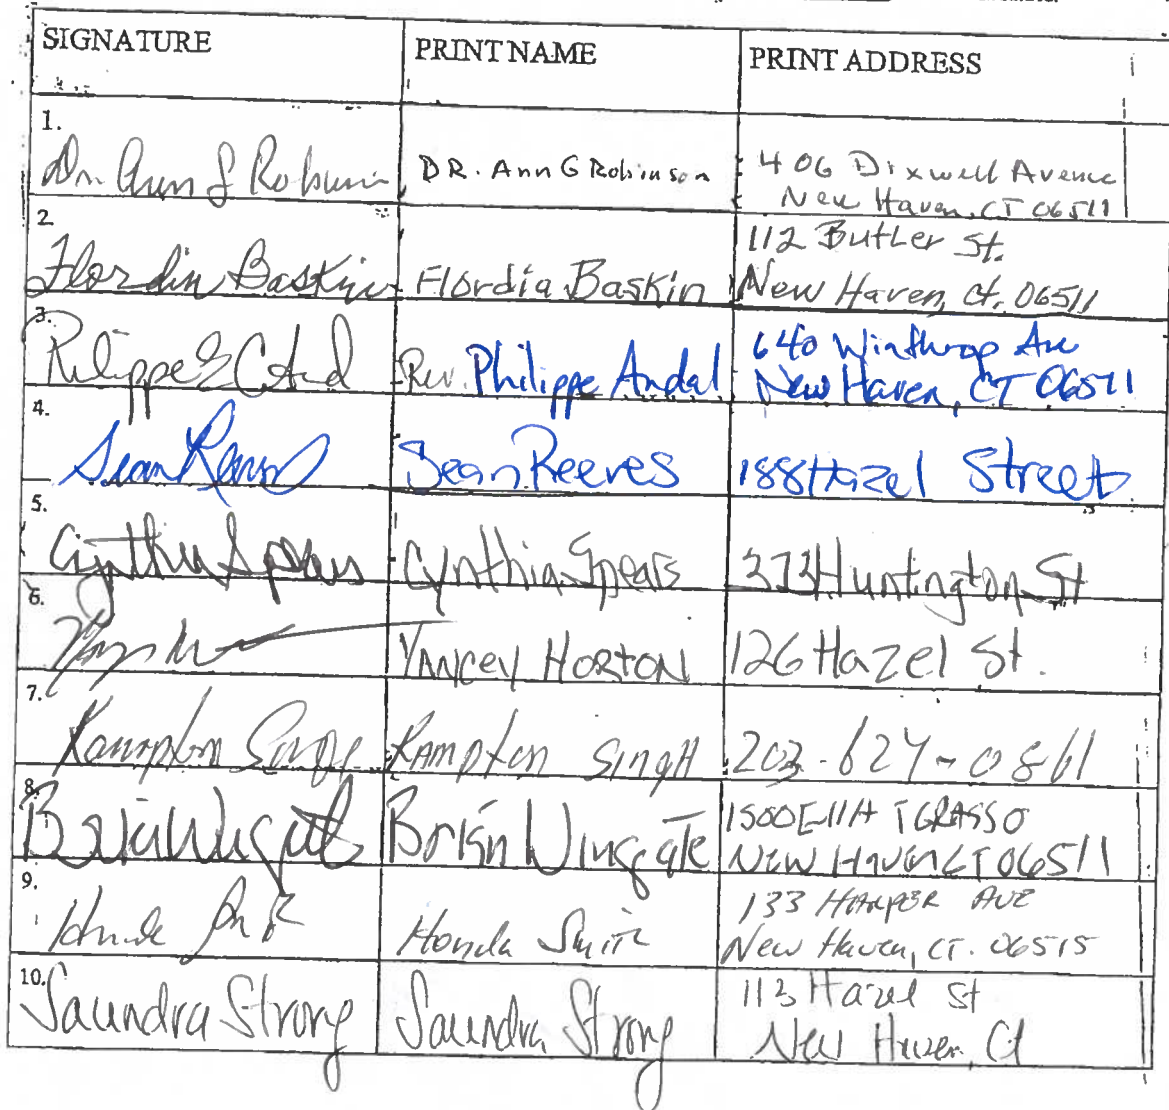 SIGNATURE PRINT NAME PRINT ADDRESS
1.
Dr. Ann G Robinson DR. Ann G Robinson 406 Dixwell Avenue
New Haven, CT 06511
2
Flordia Baskin Flordia Baskin 112 Butler St.
New Haven, Ct. 06511
3.
Philippe E C Andal Rev. Philippe Andal 640 Winthrop Ave
New Haven, CT 06511
4.
Sean Reeves Sean Reeves 188 Hazel Street
5.
Cynthia Spears Cynthia Spears 373 Huntington St
6.
YANCEY HORTON 126 Hazel St.
7.
Rampton Singh RAMPton SINGH 203-627-0861
8.
Brian Wingate Brian Wingate 1500 Ella T GRASSO
NEW HAVEN CT 06511
9.
Honda Smith 133 HARPER AVE
New Haven, CT. 06515
10.
Saundra Strong Saundra Strong 113 Hazel St
New Haven, Ct